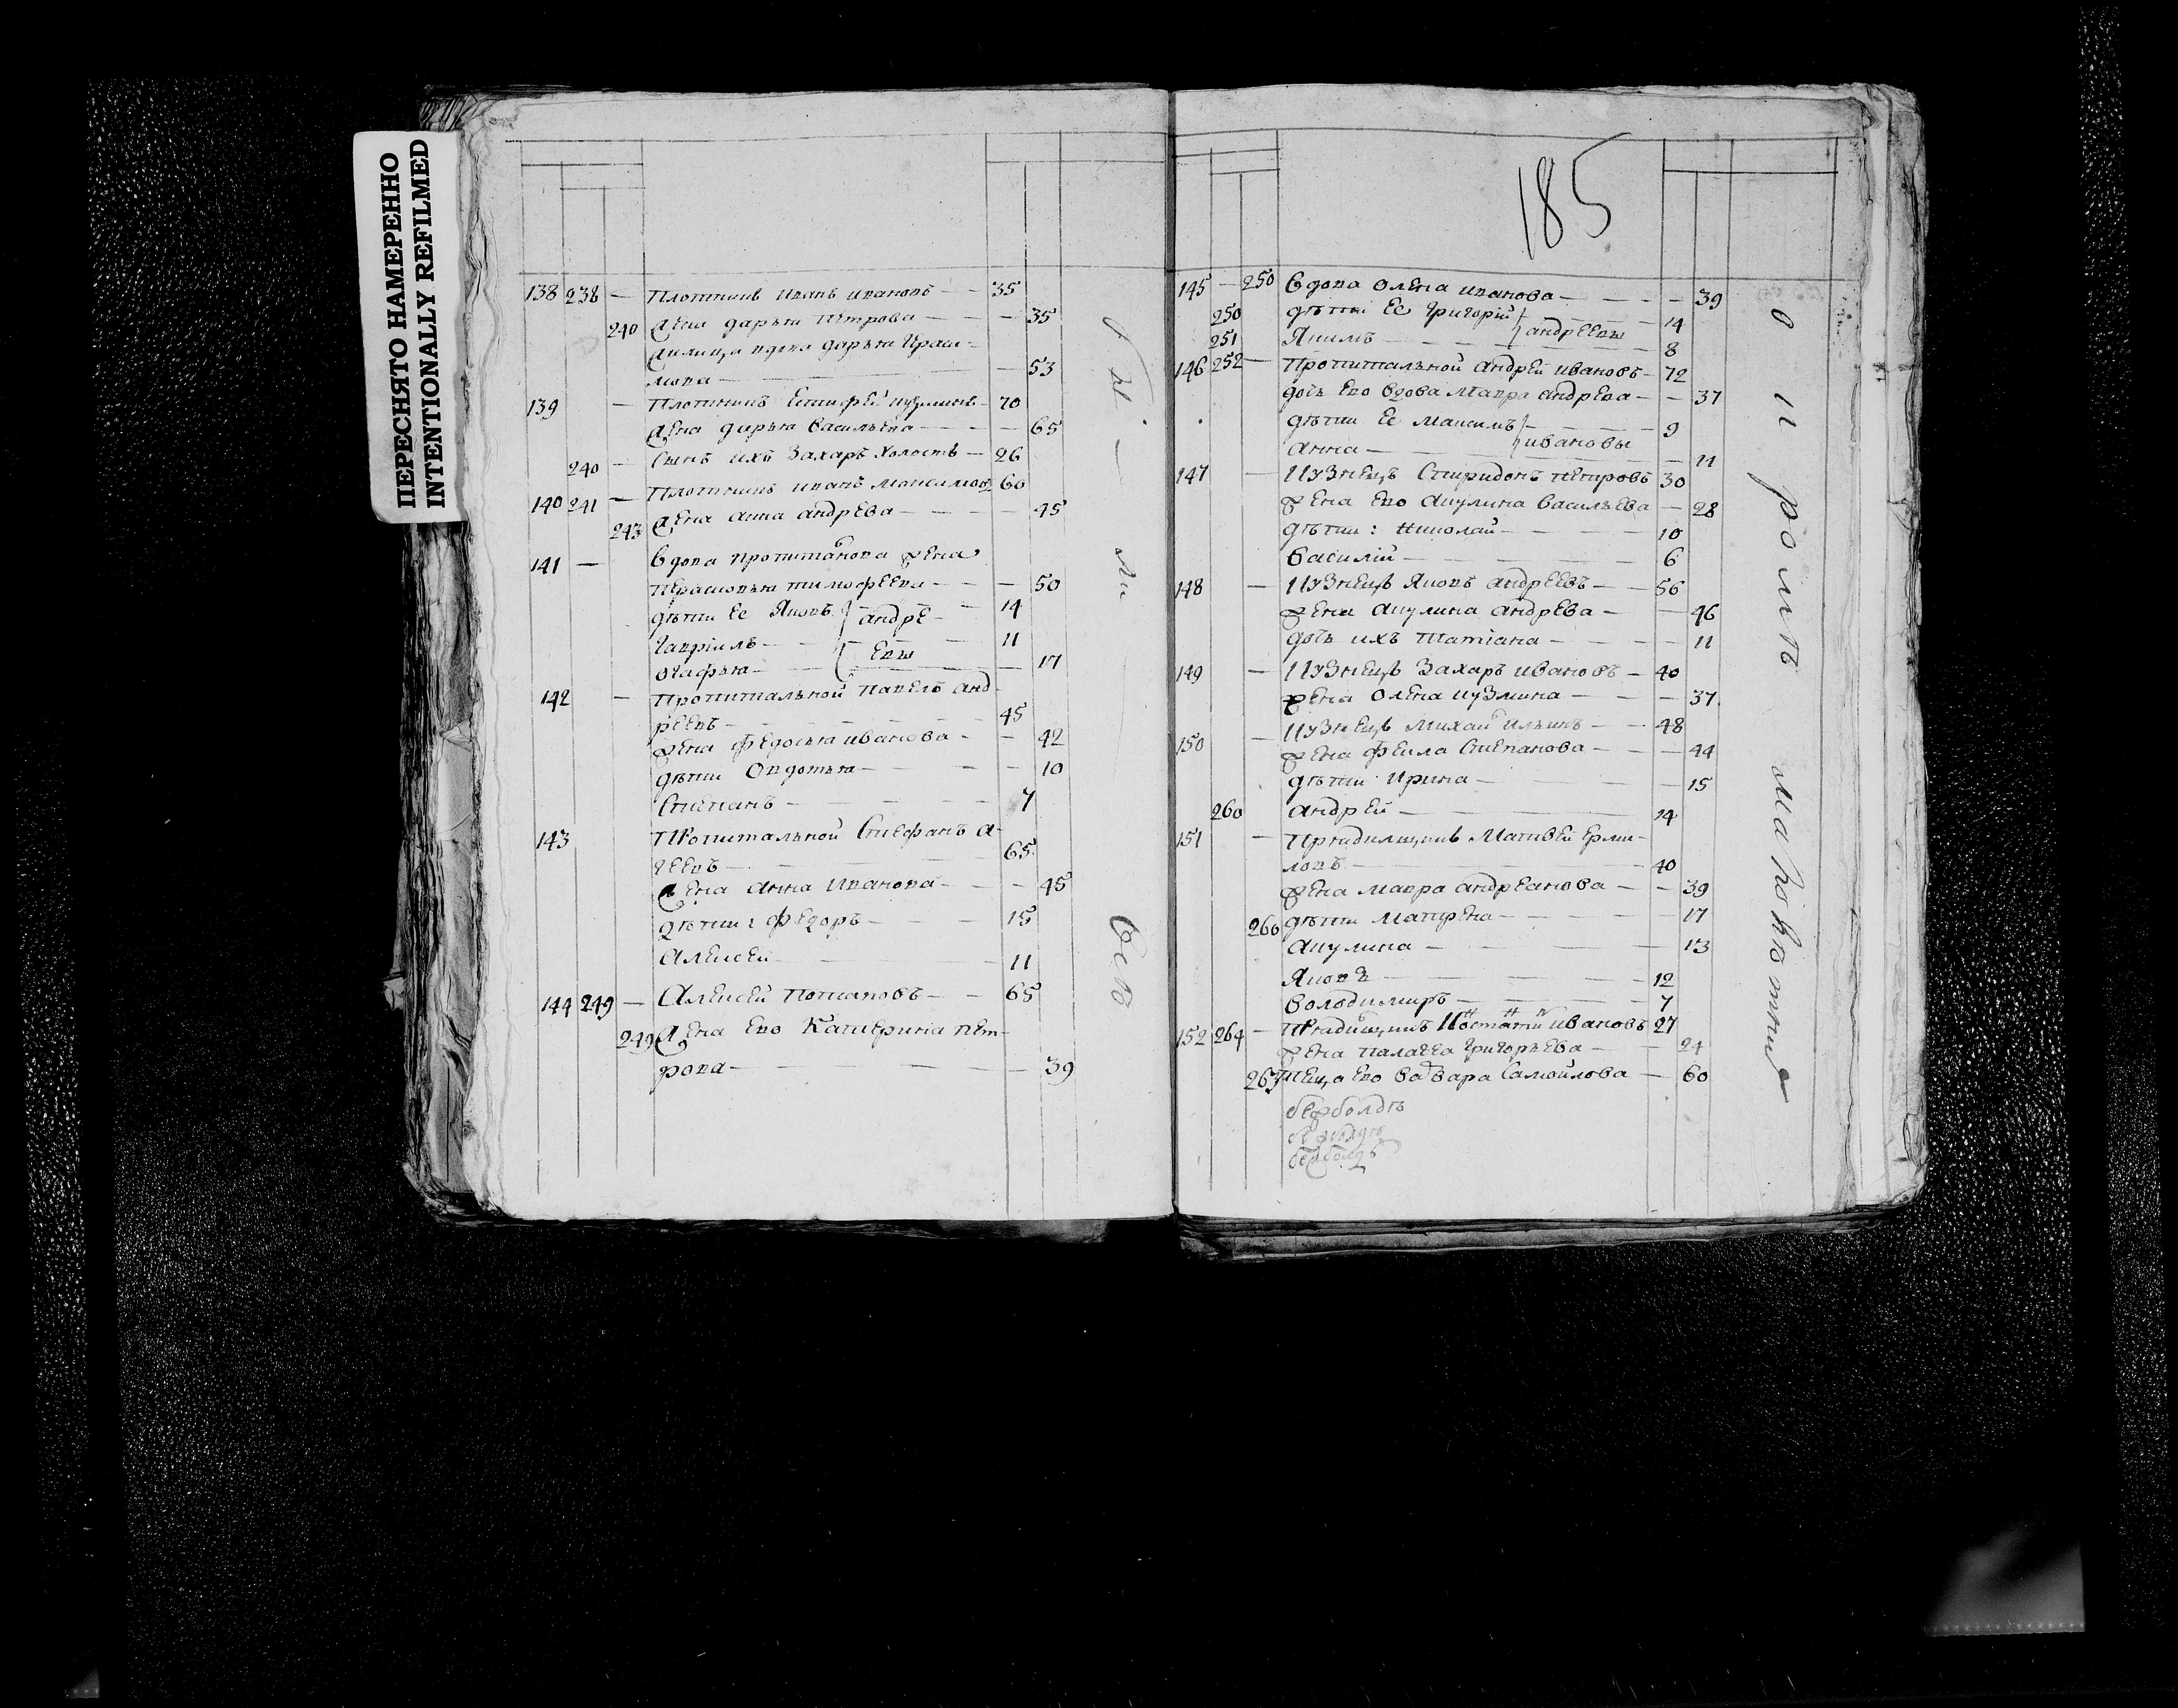 ПЕРЕСНЯТО НАМЕРЕННО
INTENTIONALLY REFILMED
138 238 — Плотникъ иванъ ивановъ — 35
240 жена дарья Петрова — 35
дарья
мова — 53
139 — Плотникъ кузминъ — 70
жена дарья васильева — 65
240 — Сынъ ихъ Захаръ холостъ — 26
140 241 — Плотникъ иванъ максимовъ 60
243 жена анна андрева — 45
141 — вдова пропитанова жена
Прасковья тимофеева — 50
дѣти Ее Яковъ } андре — 14
гаврилъ — } евы — 11
огафья — 17
142 — Пропитальной павелъ анд
реевъ — 45
жена федосья иванова — 42
дѣти овдотья — 10
Степанъ — 7
143 Пропитальной Стефанъ а-
геевъ — 65
жена анна иванова — 45
дѣти: федоръ — 15
алексей — 11
144 249 — алексей потаповъ — 65
249 жена ево катерина пет-
рова — 39
вы — ли всѣ
185
145 — 250 вдова олена иванова — 39
250 дѣти Ее григорий } андреевы — 14
251 Якимъ — 8
146 252 — Пропитальной андрей ивановъ — 72
дочь ево вдова мавра андрева — 37
дѣти Ее максимъ } ивановы — 9
анна — 11
147 — кузнецъ Спиридонъ петровъ 30
жена ево акулина васильева — 28
дѣти: николай — 10
василій — 6
148 — кузнецъ Яковъ андреевъ — 56
жена акулина андрева — 46
дочь ихъ татіана — 11
149 — кузнецъ Захаръ ивановъ — 40
жена олена кузмина — 37
150 — кузнецъ михаи ильинъ — 48
жена фекла Степанова — 44
дѣти ирина — 15
260 андрей — 14
151 — Прядилщикъ матвей ерми-
ловъ — 40
жена мавра андреанова — 39
260 дѣти матрена — 17
акулина — 13
Яковъ — 12
володимиръ — 7
152 264 — Прядилщикъ ивановъ 27
жена палагея григорьева — 24
267 теща ево варвара Самойлова — 60
о кромѣ